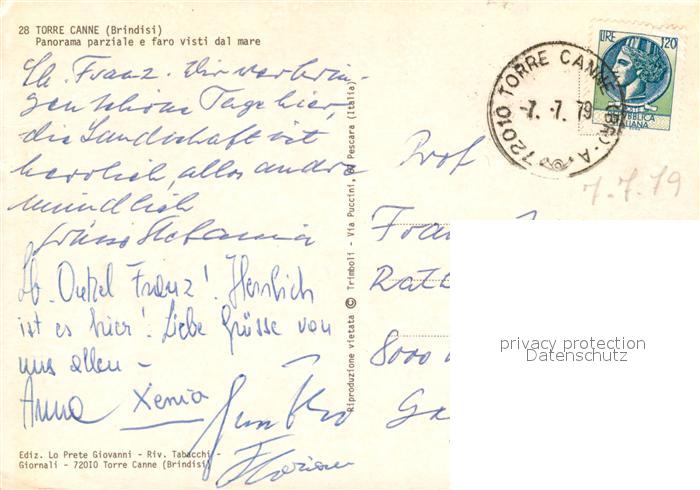 28 TORRE CANNE (Brindisi)
Panorama parziale e faro visti dal mare
Lb. Franz. Wir verbrin-
gen schöne Tage hier,
die Landschaft ist
herrlich, alles andre
mündlich
Lb. Onkel Franz! Herrlich
ist es hier! Liebe Grüsse von
uns allen -
Anna Xenia
Florian
Ediz. Lo Prete Giovanni - Riv. Tabacchi -
Giornali - 72010 Torre Canne (Brindisi)
Riproduzione vietata © Trimboli - Via Puccini, 8/ Pescara (Italia)
LIRE 120
72010 TORRE CANNE (BR) - A
-7. 7. 79
7.7.79
Prof
8000
privacy protection
Datenschutz